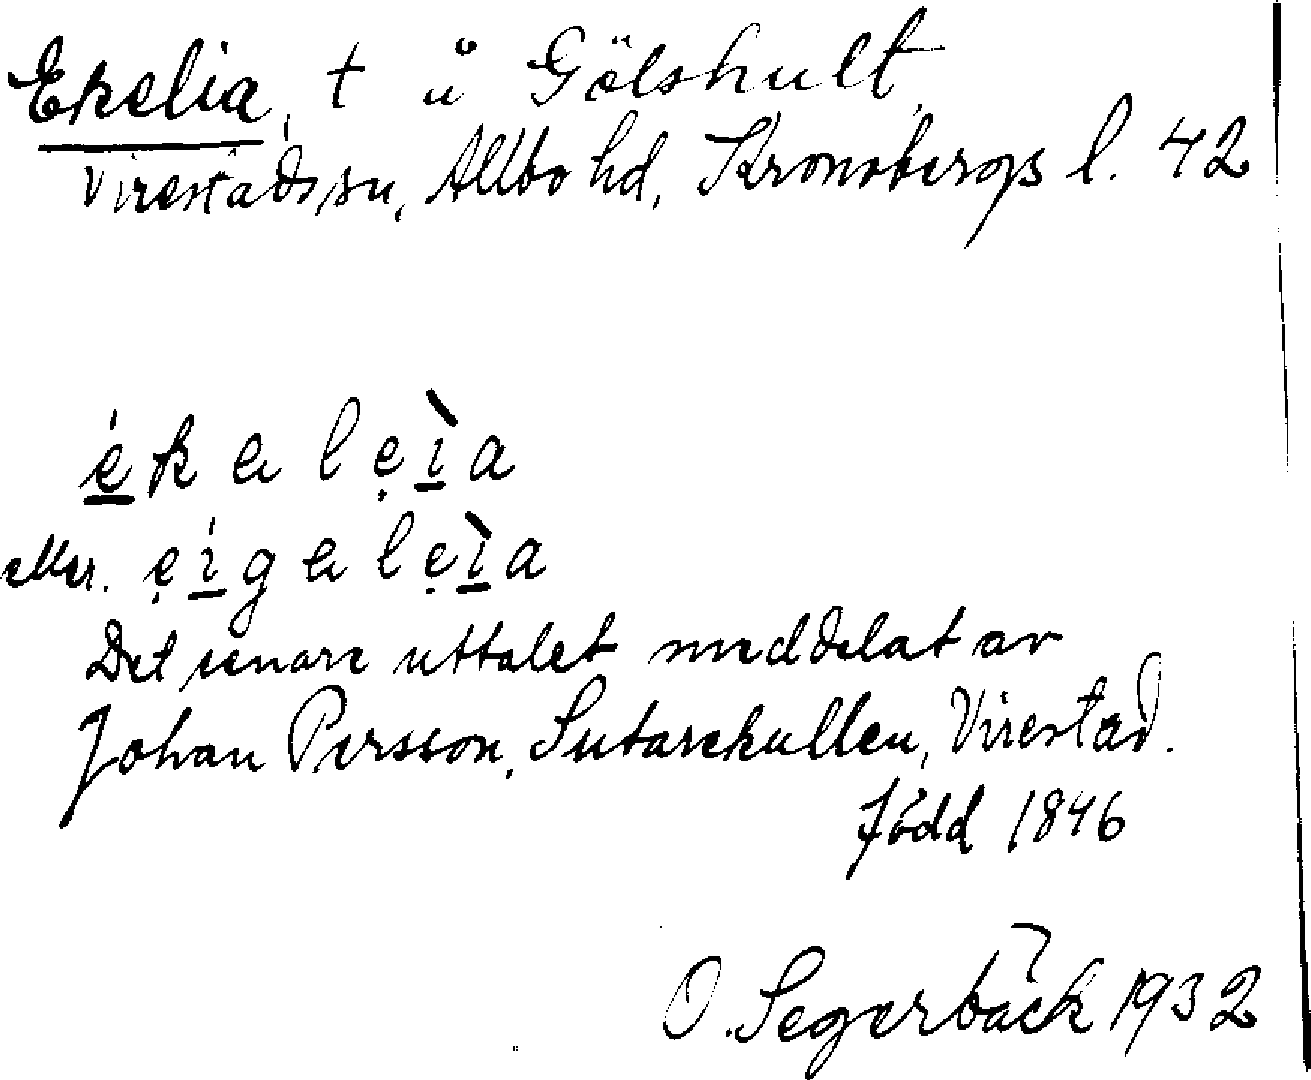 Ekelia, t å Gölshult,
Virestads sn, Allbo hd, Kronobergs l. 42
ékalẹìa
eller. ẹígalẹìa
Det senare uttalet meddelat av
Johan Persson, Sutarekullen, Virestad.
född 1846
O. Segerbäck 1932